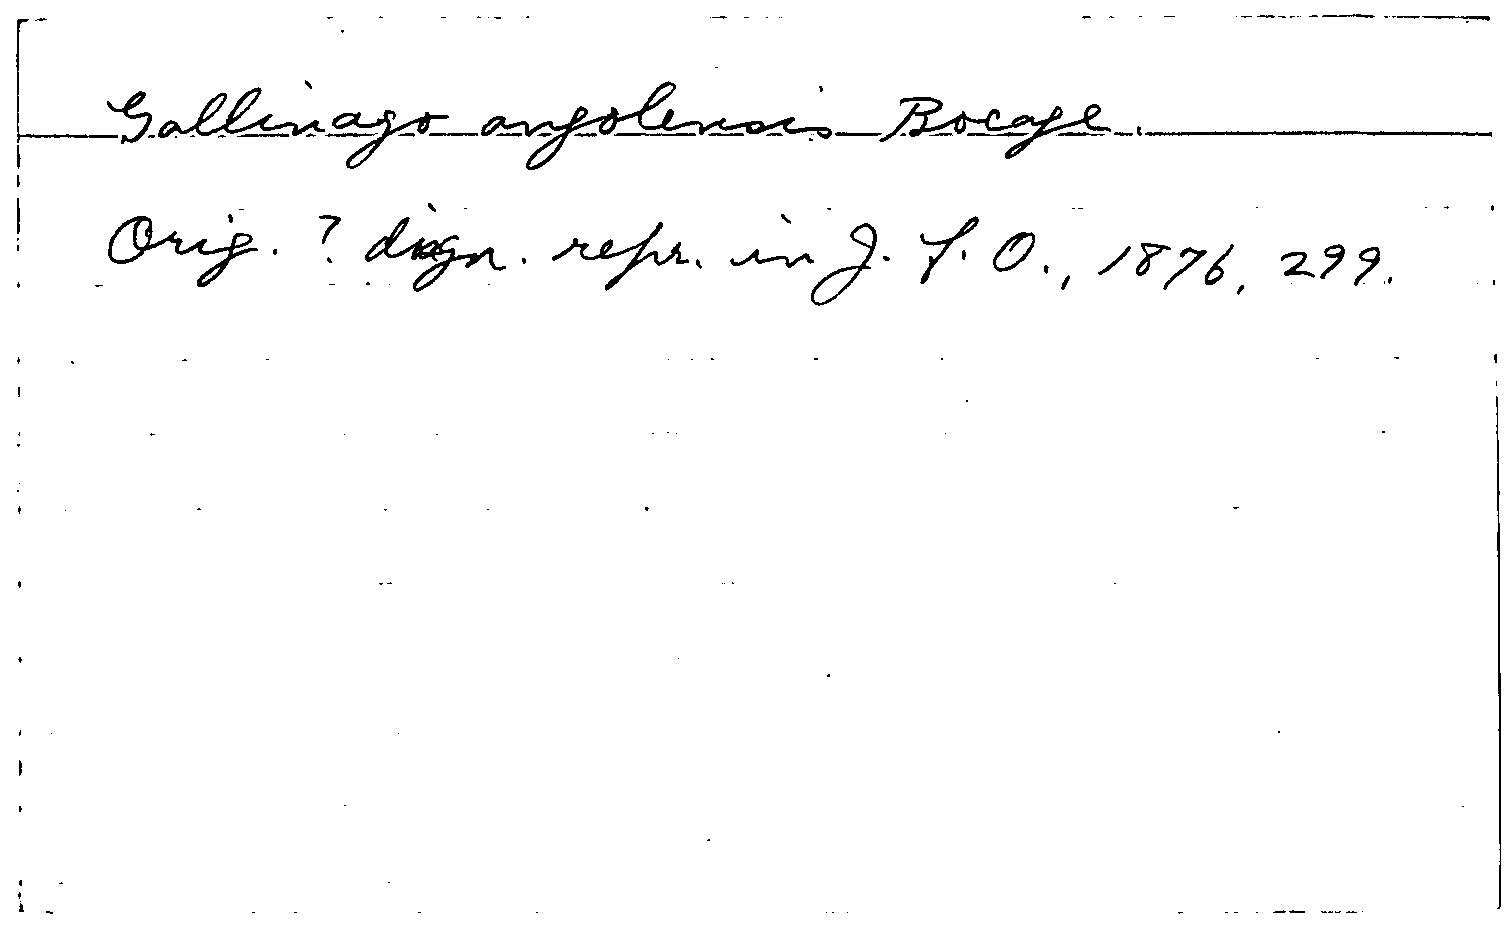 Gallinago angolensis Bocage.
Orig. ? diagn. repr. in J. f. O., 1876, 299.